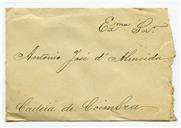 Ex.ma Snr.
Antonio José d'Almeida
Cadeia de Coimbra.